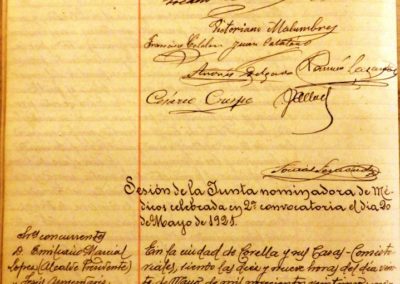 Victoriano Malumbres
Francisco Catalán Juan Catalán
Antonio Delgado Ramón
Cesáreo Crespo
Sesión de la Junta nominadora de Mé-
dicos celebrada en 2ª convocatoria el dia 20
de Mayo de 1925.
Sres concurrentes
D. Emiliano Marcial
Lopez (Alcalde Presidente)
En la ciudad de Corella y sus Casas-Consisto-
riales, siendo las diez y nueve horas del dia vein-
te de Mayo de mil novecientos veinticinco